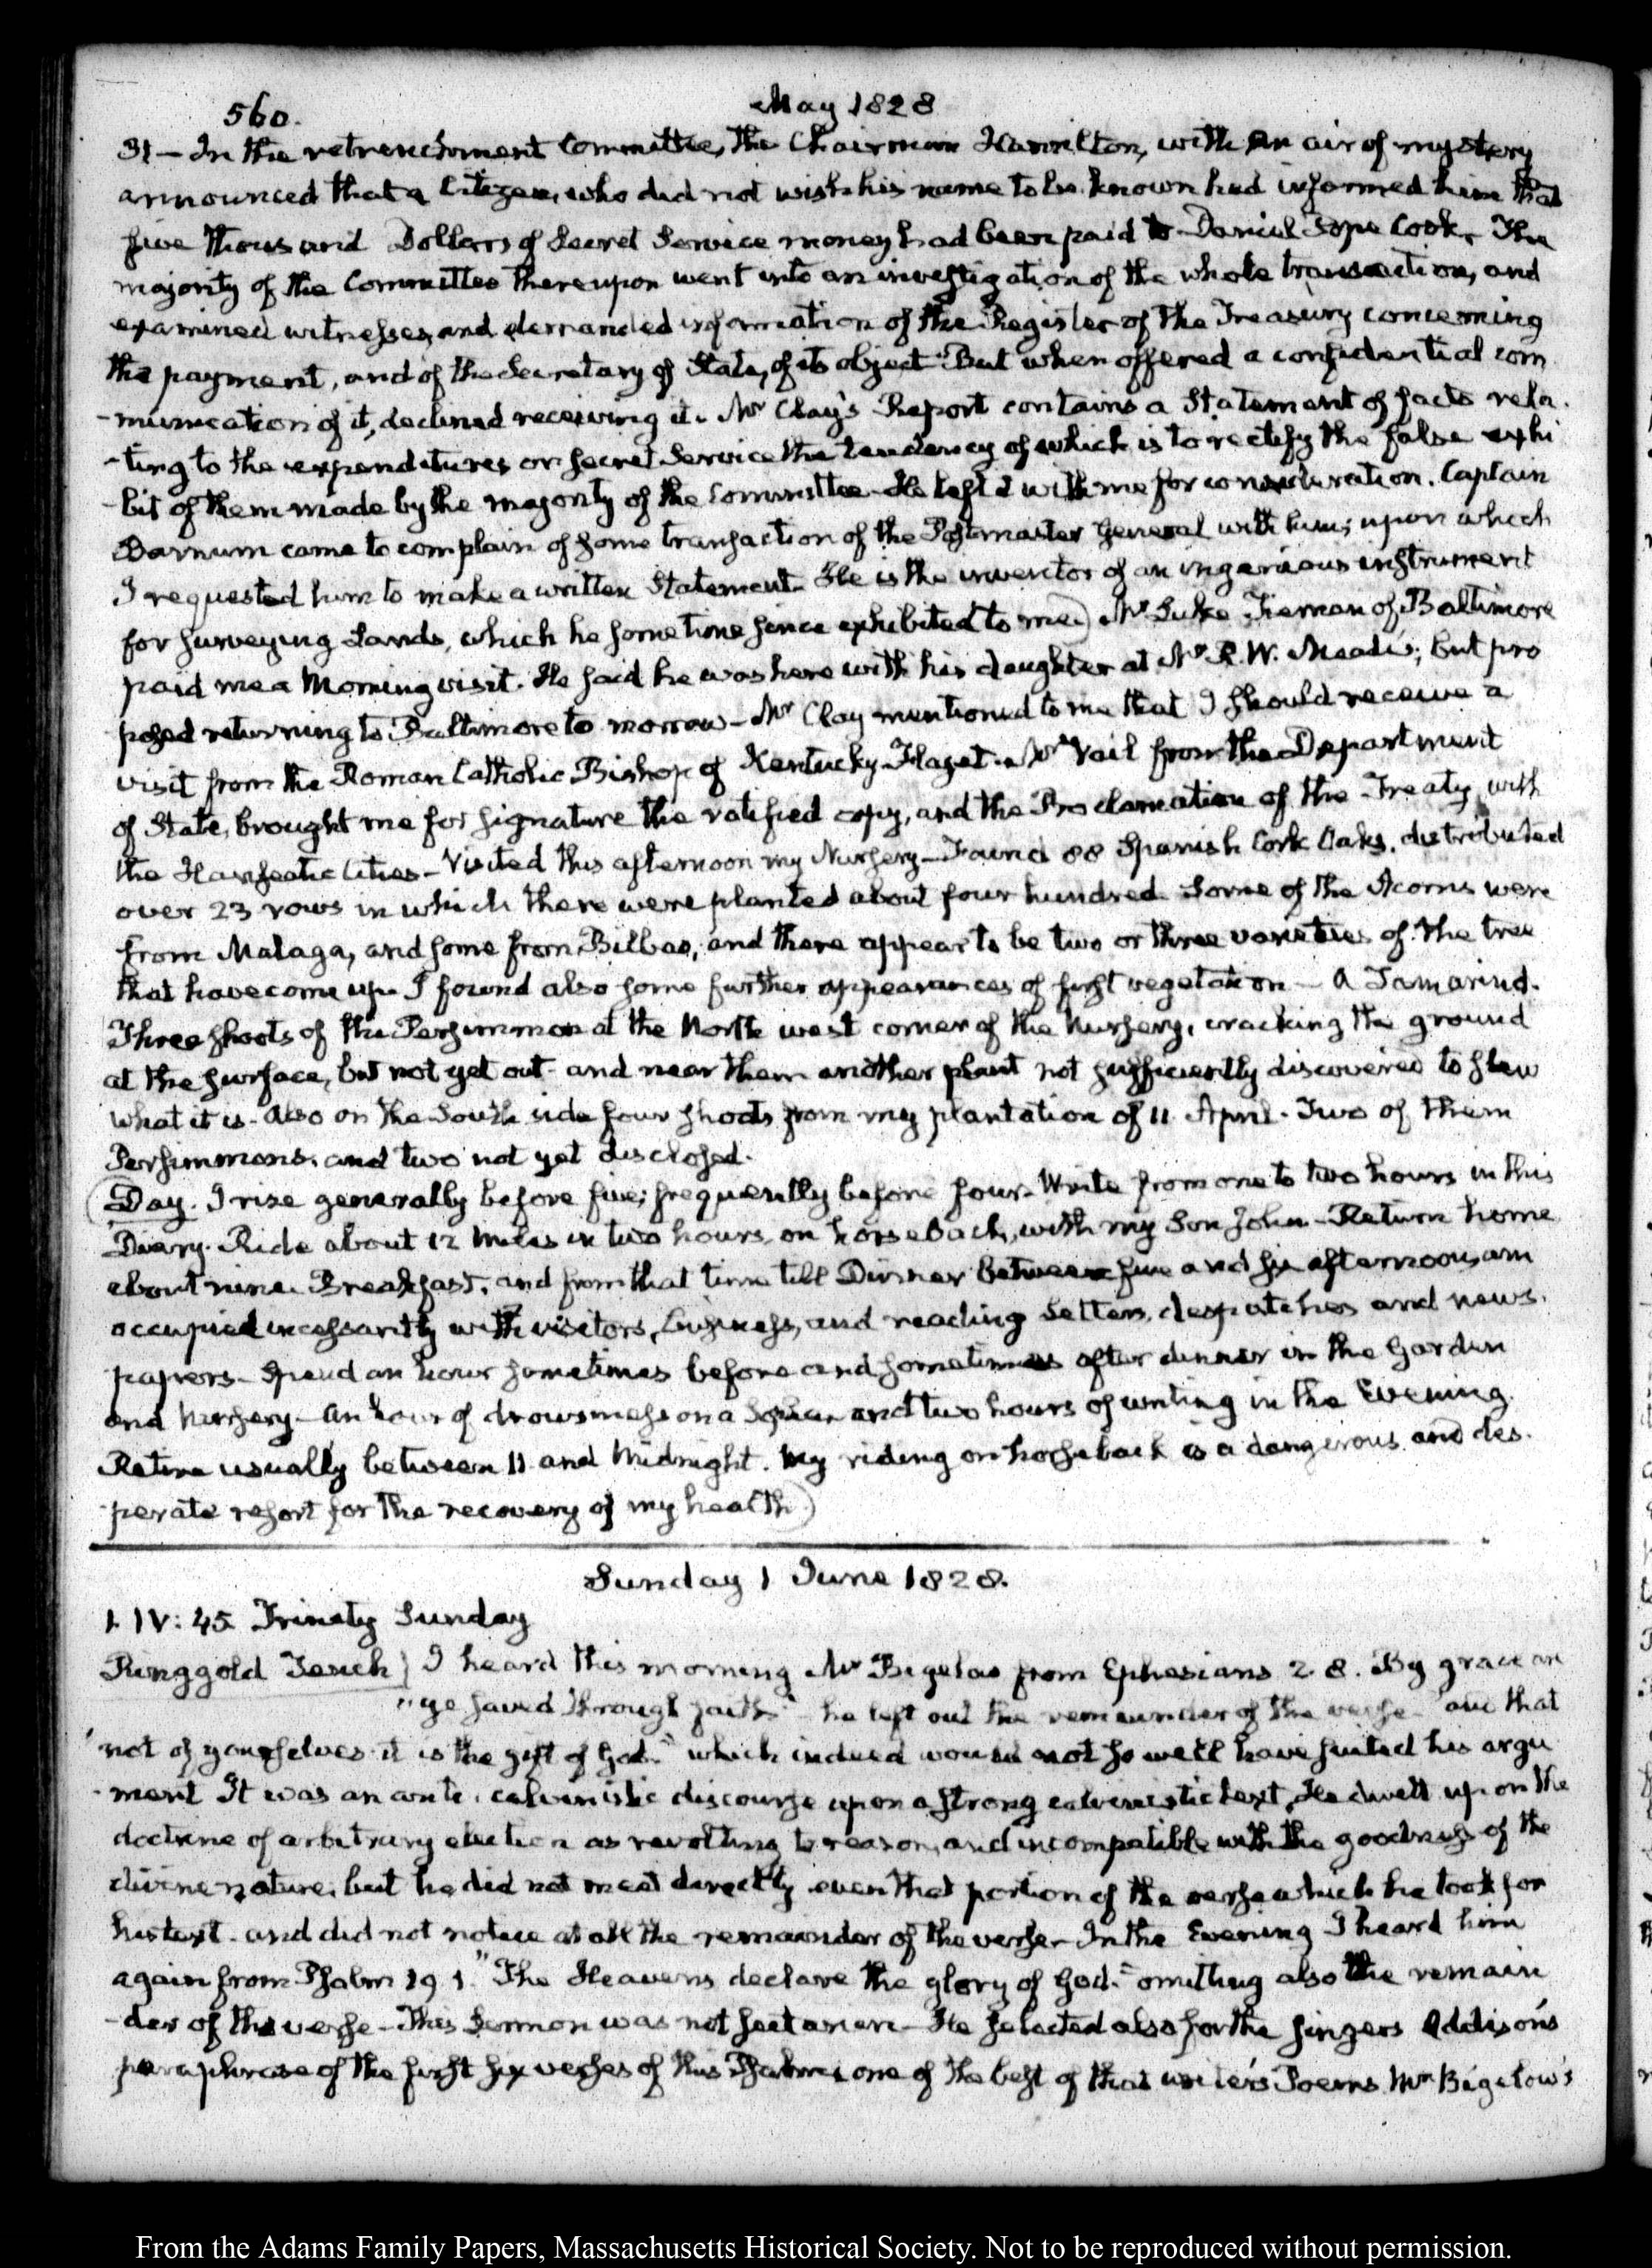 560.
May 1828
31 — In the retrenchment Committee, the Chairman Hamilton, with an air of mystery
announced that a Citizen, who did not wish his name to be known had informed him that
five thousand Dollars of Secret Service money had been paid to Daniel Pope Cook. The
majority of the Committee thereupon went into an investigation of the whole transaction, and
examined witnesses, and demanded information of the Register of the Treasury concerning
the payment, and of the Secretary of State, of its object. But when offered a confidential com
-munication of it, declined receiving it. Mr Clay's Report contains a Statement of facts rela-
-ting to the expenditures on secret Service the tendency of which is to rectify the false exhi
-bit of them made by the majority of the Committee. He left it with me for consideration. Captain
Barnum came to complain of some transaction of the Postmaster General with him; upon which
I requested him to make a written Statement. He is the inventor of an ingenious instrument
for surveying Lands, which he sometime since exhibited to me) Mr Luke Tiernan of Baltimore
paid me a Morning visit. He said he was here with his daughter at Mr R. W. Meade's; but pro
posed returning to Baltimore to morrow — Mr Clay mentioned to me that I should receive a
visit from the Roman Catholic Bishop of Kentucky Flaget. Mr Vail from the Department
of State, brought me for signature the ratified copy, and the Proclamation of the Treaty with
the Hanseatic Cities — Visited this afternoon my Nursery — Found 88 Spanish Cork Oaks, distributed
over 23 rows in which there were planted about four hundred. Some of the Acorns were
from Malaga, and some from Bilbao, and there appear to be two or three varieties of the tree
that have come up. I found also some further appearances of first vegetation — A Tamarind.
Three shoots of the Persimmon at the North west corner of the Nursery, cracking the ground
at the surface, but not yet out - and near them another plant not sufficiently discovered to shew
what it is - Also on the South side four shoots from my plantation of 11 April. Two of them
Persimmons, and two not yet disclosed.
(Day. I rise generally before five; frequently before four. Write from one to two hours in this
Diary. Ride about 12 miles in two hours, on horseback, with my Son John — Return home
about nine. Breakfast, and from that time till Dinner between five and six afternoon, am
occupied incessantly with visitors, business, and reading Letters, despatches and news-
papers — Spend an hour sometimes before and sometimes after dinner in the Garden
and Nursery — An hour of drowsiness on a Sopha and two hours of writing in the Evening.
Retire usually between 11 and Midnight. My riding on horseback is a dangerous and des-
-perate resort for the recovery of my health.)
Sunday 1 June 1828.
1. IV: 45. Trinity Sunday
Ringgold Tench) I heard this morning Mr Bigelow from Ephesians 2. 8. By grace are
"ye saved through faith" — he left out the remainder of the verse — "and that
"not of yourselves it is the gift of God." which indeed would not so well have suited his argu
-ment It was an anti-calvinistic discourse upon a strong calvinistic text. He dwelt upon the
doctrine of arbitrary election as revolting to reason, and incompatible with the goodness of the
divine nature, but he did not meet directly even that portion of the verse which he took for
his text — and did not notice at all the remainder of the verse — In the Evening I heard him
again from Psalm 19. 1. "The Heavens declare the glory of God." omitting also the remain
-der of the verse — This Sermon was not sectarian — He selected also for the singers Addison's
paraphrase of the first six verses of this Psalm, one of the best of that writer's Poems. Mr Bigelow's
From the Adams Family Papers, Massachusetts Historical Society. Not to be reproduced without permission.